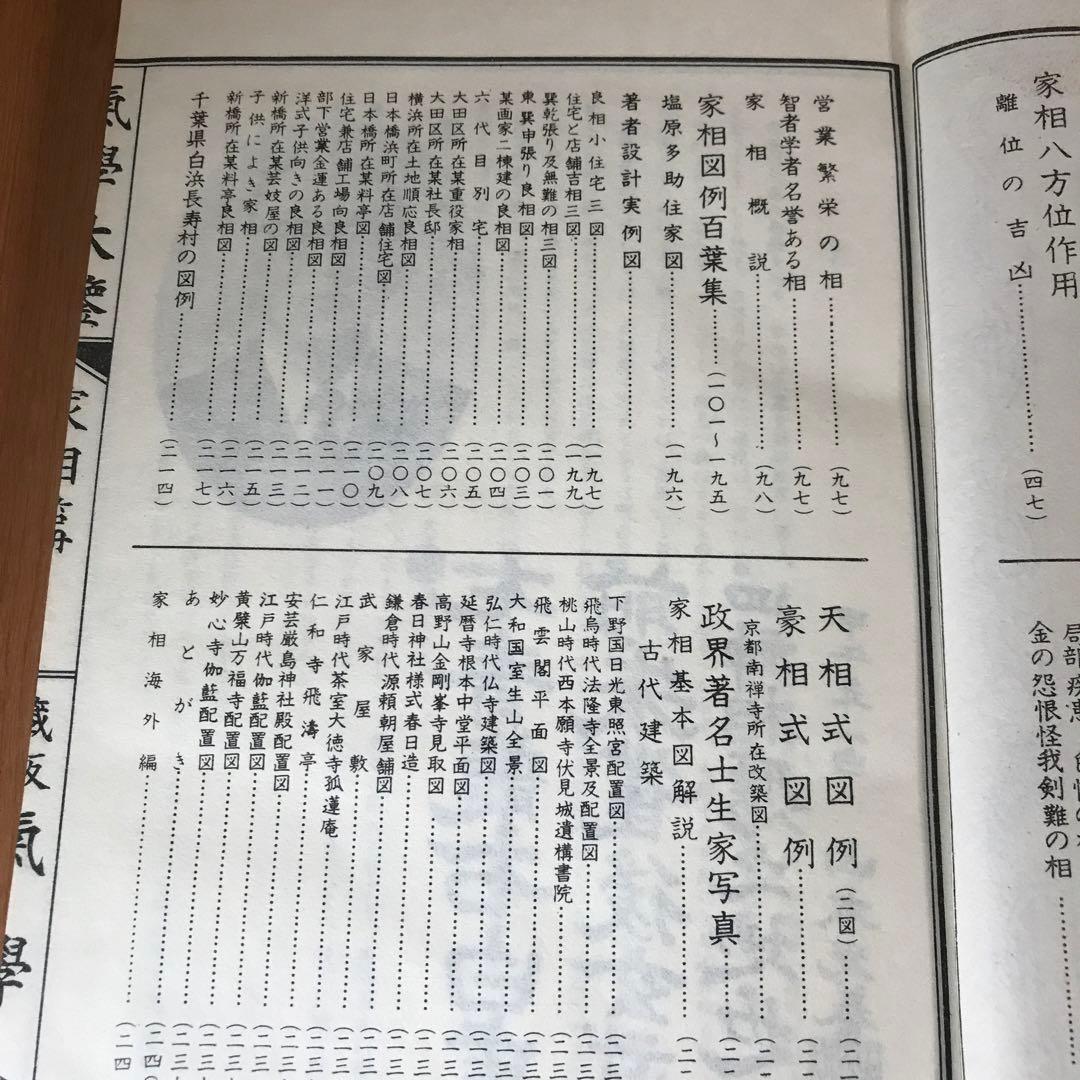 家相八方位作用
離位の吉凶……(四七)
金の怨恨怪我剣難の相
営業繁栄の相……(九七)
智者学者名誉ある相……(九七)
家相概説……(九八)
家相図例百葉集……(一〇一～一九五)
塩原多助住家図……(一九六)
著者設計実例図
良相小住宅三図……(一九七)
住宅と店舗吉相三図……(一九九)
巽乾張り及無難の相三図……(二〇一)
東巽申張り良相図……(二〇三)
某画家二棟建の良相図……(二〇四)
六代目別宅……(二〇五)
大田区所在某重役家相……(二〇六)
大田区所在某社長邸……(二〇七)
横浜所在土地順応良相図……(二〇八)
日本橋浜町所在店舗住宅図……(二〇九)
日本橋所在某料亭図……(二一〇)
住宅兼店舗工場向良相図……(二一一)
部下営業金運ある良相図……(二一二)
洋式子供向きの良相図……(二一三)
新橋所在某芸妓屋の図……(二一五)
子供によき家相……(二一六)
新橋所在某料亭良相図……(二一七)
千葉県白浜長寿村の図例……(二一四)
天相式図例(二図)……
豪相式図例……
京都南禅寺所在改築図……
政界著名士生家写真……
家相基本図解説……
古代建築
下野国日光東照宮配置図……
飛鳥時代法隆寺全景及配置図……
桃山時代西本願寺伏見城遺構書院……
飛雲閣平面図……
大和国室生山全景……
弘仁時代仏寺建築図……
延暦寺根本中堂平面図……
高野山金剛峯寺見取図……
春日神社様式春日造……
鎌倉時代源頼朝屋舗図……
武家屋敷……
江戸時代茶室大徳寺孤蓬庵……
仁和寺飛濤亭……
安芸厳島神社殿配置図……
江戸時代伽藍配置図……
黄檗山万福寺配置図……
妙心寺伽藍配置図……
あとがき……
家相海外編……
氣學大鑒
家相篇